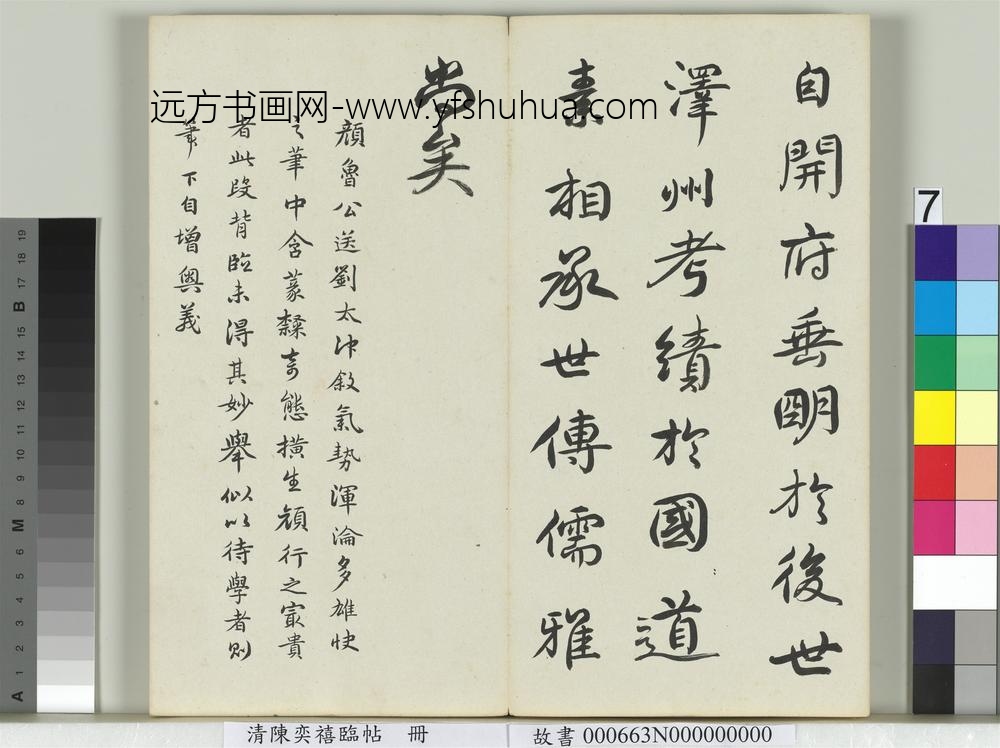 自開府垂明於後世
澤州考績於國道
素相承世傳儒雅
尚矣
顏魯公送劉太沖敘氣勢渾淪多雄快
之筆中含篆隸奇態橫生顏行之最貴
者此段背臨未得其妙舉似以待學者則
筆下自增興義
远方书画网-www.yfshuhua.com
7
A 1 2 3 4 5 6 M 8 9 10 11 12 13 14 15 B 17 18 19
清陳奕禧臨帖 冊
故書 000663N000000000